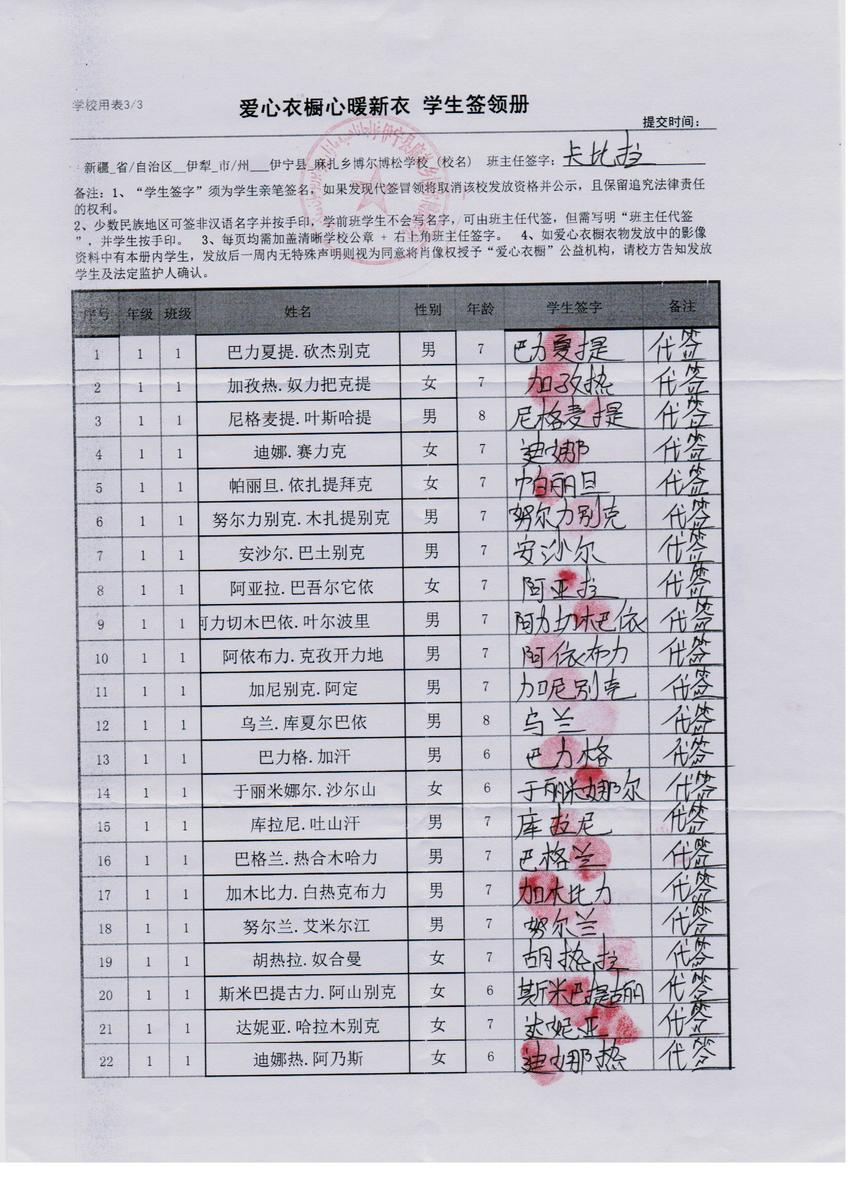 学校用表3/3
爱心衣橱心暖新衣 学生签领册
提交时间：
新疆_省/自治区__伊犁_市/州___伊宁县_麻扎乡博尔博松学校_(校名) 班主任签字：卡比拉
备注：1、“学生签字”须为学生亲笔签名，如果发现代签冒领将取消该校发放资格并公示，且保留追究法律责任
的权利。
2、少数民族地区可签非汉语名字并按手印，学前班学生不会写名字，可由班主任代签，但需写明“班主任代签
”，并学生按手印。 3、每页均需加盖清晰学校公章 + 右上角班主任签字。 4、如爱心衣橱衣物发放中的影像
资料中有本册内学生，发放后一周内无特殊声明则视为同意将肖像权授予“爱心衣橱”公益机构，请校方告知发放
学生及法定监护人确认。
序号 年级 班级 姓名 性别 年龄 学生签字 备注
1 1 1 巴力夏提.砍杰别克 男 7 巴力夏提 代签
2 1 1 加孜热.奴力把克提 女 7 加孜热 代签
3 1 1 尼格麦提.叶斯哈提 男 8 尼格麦提 代签
4 1 1 迪娜.赛力克 女 7 迪娜 代签
5 1 1 帕丽旦.依扎提拜克 女 7 帕丽旦 代签
6 1 1 努尔力别克.木扎提别克 男 7 努尔力别克 代签
7 1 1 安沙尔.巴土别克 男 7 安沙尔 代签
8 1 1 阿亚拉.巴吾尔它依 女 7 阿亚拉 代签
9 1 1 阿力切木巴依.叶尔波里 男 7 阿力切木巴依 代签
10 1 1 阿依布力.克孜开力地 男 7 阿依布力 代签
11 1 1 加尼别克.阿定 男 7 加尼别克 代签
12 1 1 乌兰.库夏尔巴依 男 8 乌兰 代签
13 1 1 巴力格.加汗 男 6 巴力格 代签
14 1 1 于丽米娜尔.沙尔山 女 6 于丽米娜尔 代签
15 1 1 库拉尼.吐山汗 男 7 库拉尼 代签
16 1 1 巴格兰.热合木哈力 男 7 巴格兰 代签
17 1 1 加木比力.白热克布力 男 7 加木比力 代签
18 1 1 努尔兰.艾米尔江 男 7 努尔兰 代签
19 1 1 胡热拉.奴合曼 女 7 胡热拉 代签
20 1 1 斯米巴提古力.阿山别克 女 6 斯米巴提古丽 代签
21 1 1 达妮亚.哈拉木别克 女 7 达妮亚 代签
22 1 1 迪娜热.阿乃斯 女 6 迪娜热 代签